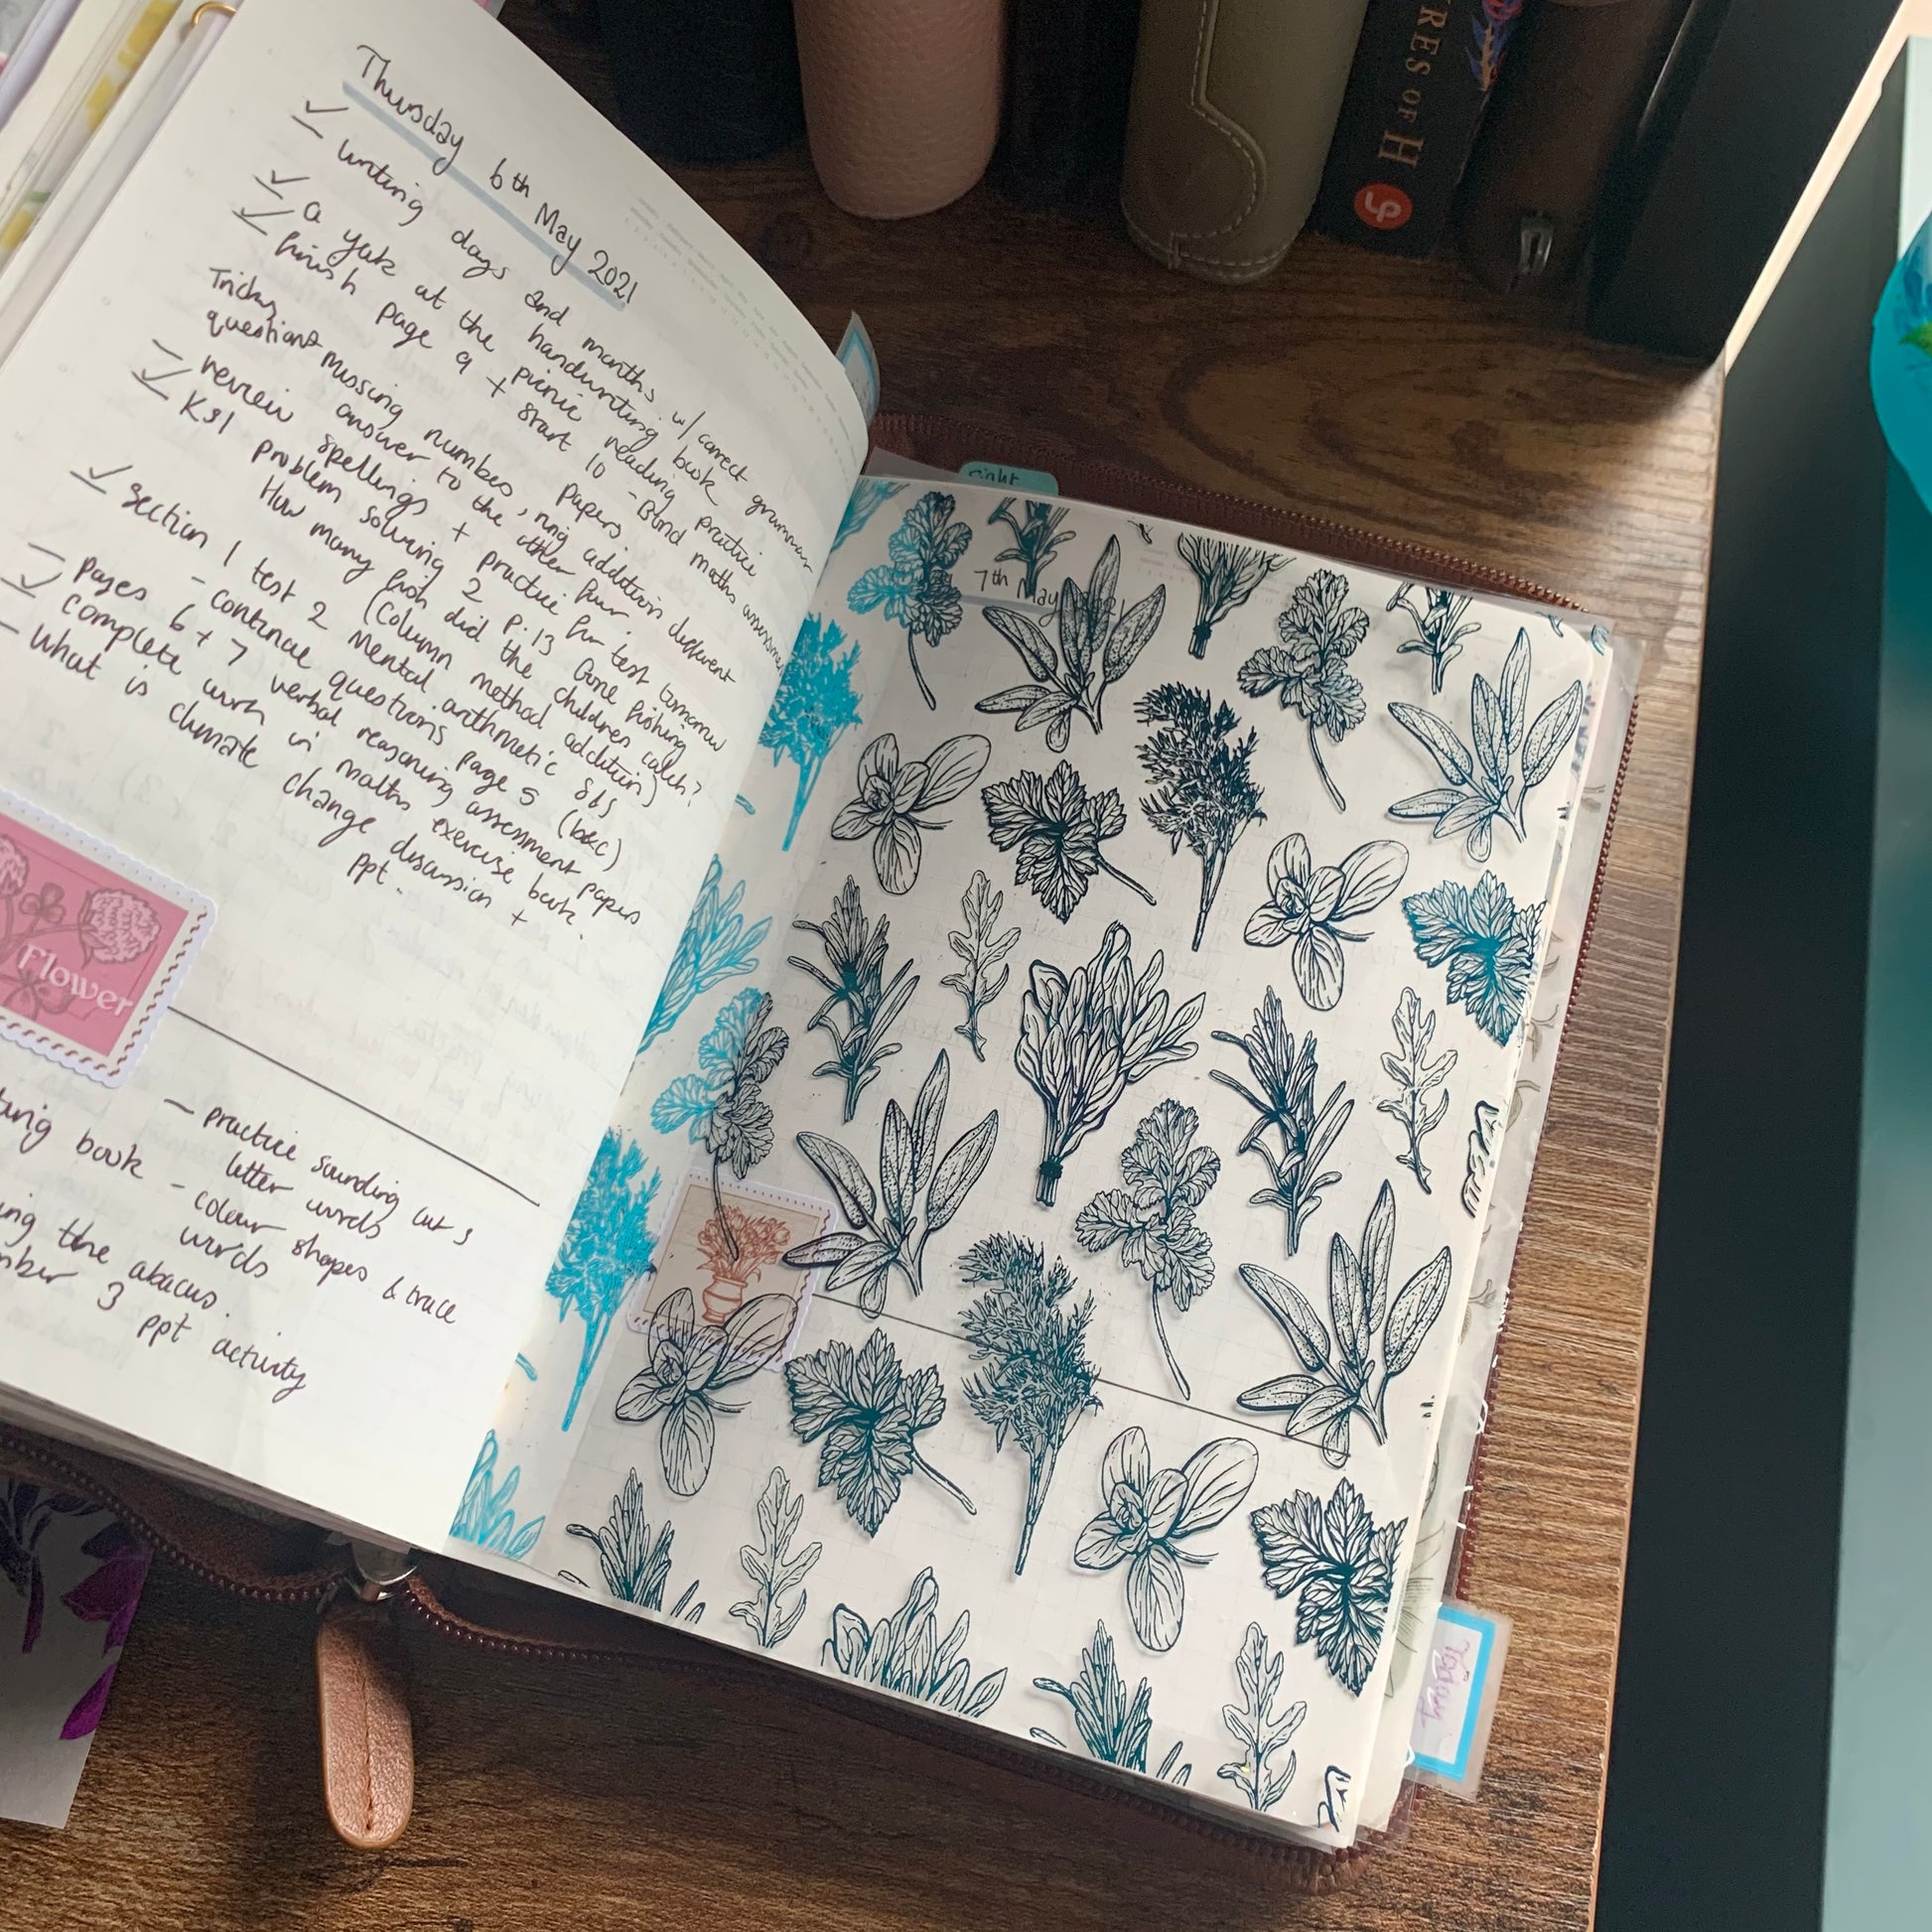 Thursday 6th May 2021
writing days and months w/ correct grammar
a yak at the picnic reading practice
handwriting book
finish page 9 + start 10 - Bond maths assessment papers.
Tricky questions missing numbers, addition different
answer to the other four.
review spellings + practice for test tomorrow
KS1 problem solving 2 p.13 Gone fishing
How many fish did the children catch?
(column method addition)
Section 1 test 2 Mental arithmetic
- continue questions page 5 (b&c)
pages 6 + 7 verbal reasoning assessment papers
complete work in maths exercise book.
What is climate change discussion +
ppt.
Flower
book
- practice sounding out 3
letter words
- colour shapes & trace
words
the abacus.
3 ppt activity
7th May 2021
Today
RES OF H